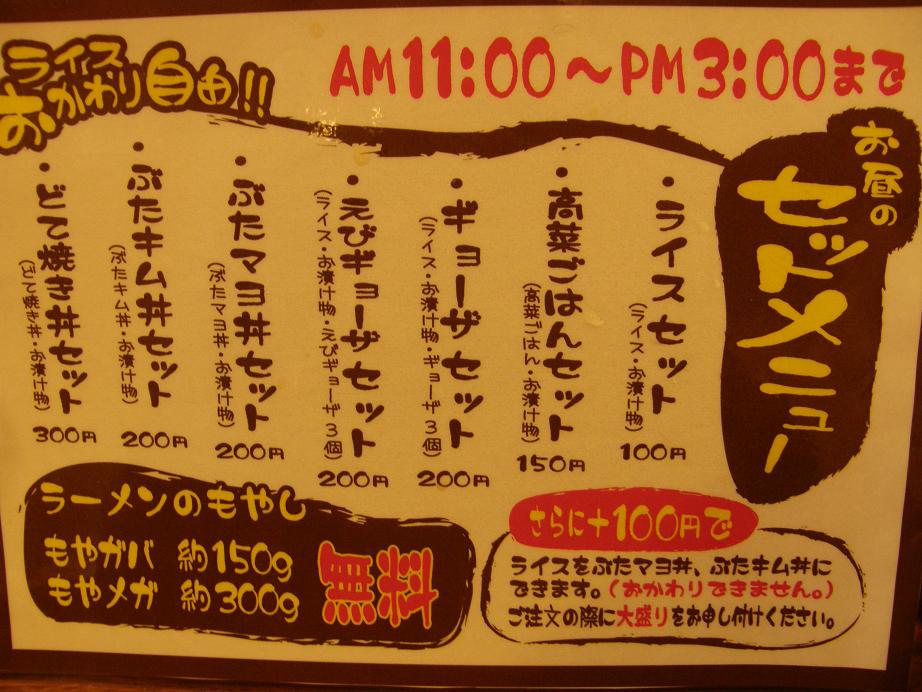 ライス
おかわり自由!!
AM11:00～PM3:00まで
お昼の
セットメニュー
・ライスセット
(ライス・お漬け物)
100円
・高菜ごはんセット
(高菜ごはん・お漬け物)
150円
・ギョーザセット
(ライス・お漬け物・ギョーザ3個)
200円
・えびギョーザセット
(ライス・お漬け物・えびギョーザ3個)
200円
・ぶたマヨ丼セット
(ぶたマヨ丼・お漬け物)
200円
・ぶたキム丼セット
(ぶたキム丼・お漬け物)
200円
・どて焼き丼セット
(どて焼き丼・お漬け物)
300円
ラーメンのもやし
もやガバ 約150g
もやメガ 約300g
無料
さらに+100円で
ライスをぶたマヨ丼、ぶたキム丼に
できます。(おかわりできません。)
ご注文の際に大盛りをお申し付けください。